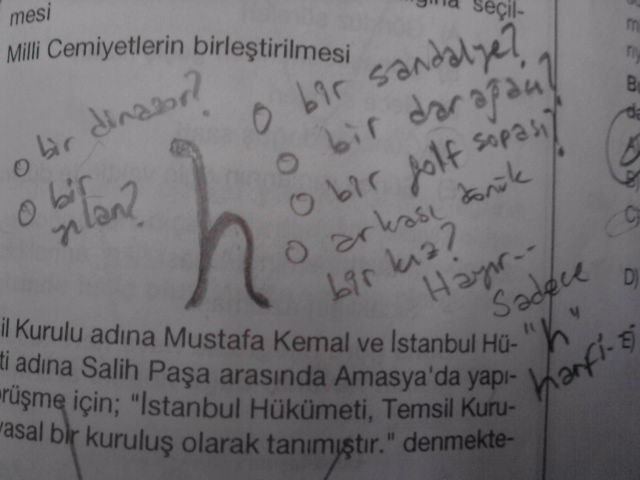 mesi
seçil-
Milli Cemiyetlerin birleştirilmesi
O bir dinazor?
O bir yılan?
h
O bir sandalye?
O bir darağacı?
O bir golf sopası?
O arkası dönük
bir kız?
Hayır--
Sadece
"h"
harfi--
sil Kurulu adına Mustafa Kemal ve İstanbul Hü-
ti adına Salih Paşa arasında Amasya'da yapı-
örüşme için; "İstanbul Hükümeti, Temsil Kuru-
yasal bir kuruluş olarak tanımıştır." denmekte-
D)
E)